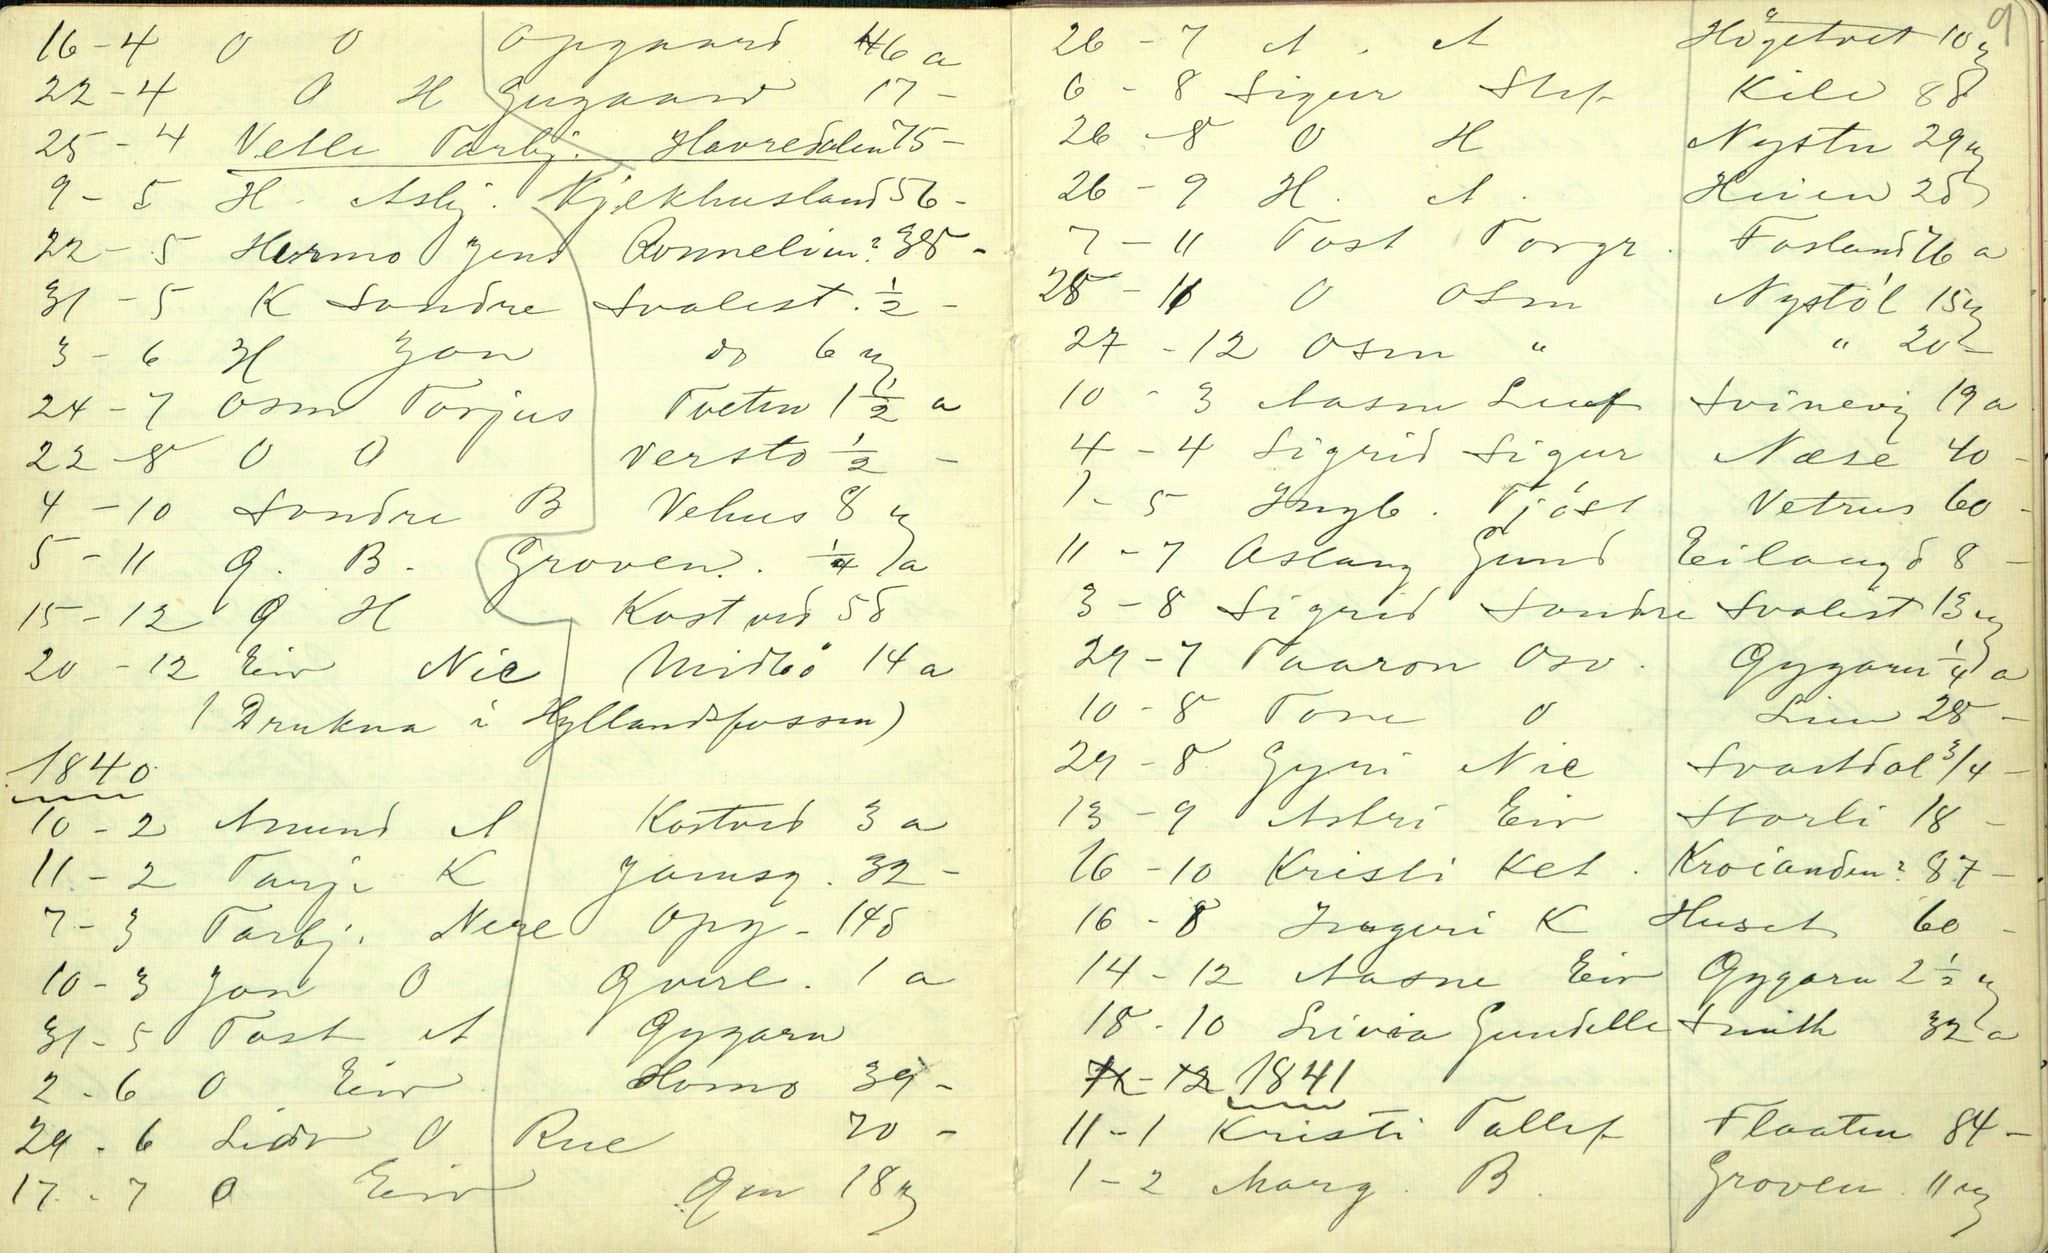 16 - 4 O O Opgaard 46 a
22 - 4 O H Gugaard 17 -
25 - 4 Vetle Tarbj. Havredalen 75 -
9 - 5 H. Asbj. Kjekhusland 56 -
22 - 5 Hermo Jens Ronneliin? 38 -
31 - 5 K Sondre Svalest. 1/2 -
3 - 6 H Jon do 6 u
24 - 7 Osm Torjus Tveten 1 1/2 a
22 - 8 O O Versto 1/2 -
4 - 10 Sondre B Vehus 8 u
5 - 11 G. B. Groven. 1/4 a
15 - 12 G H Kostved 58
20 - 12 Eiv Nic Midtbö 14 a
(Drukna i Hyllandsfossen)
1840
10 - 2 Amund A Kostved 3 a
11 - 2 Tarje K Jamsg. 32 -
7 - 3 Tarbj. Nere Opg - 145
10 - 3 Jon O Qverl. 1 a
31 - 5 Tost A Gygarn
2 - 6 O Eiv Homo 39 -
29 - 6 Lidv O Rue 70 -
17 - 7 O Eiv 18 u
9
26 - 7 A. A Högetvet 10 u
6 - 8 Sigur Stef Kile 88
26 - 8 O H Nystu 29 u
26 - 9 H. A. 25
7 - 11 Tost Torgr. Fosland 76 a
28 - 11 O Osm Nystöl 15 u
27 - 12 Osm " " 20 -
10 - 3 Aasne Leif Svinevig 19 a
4 - 4 Sigrid Sigur Næse 40 -
1 - 5 Ingb. Tjöst Vetrus 60 -
11 - 7 Aslaug Gund Eilaugd 8 -
3 - 8 Sigrid Sondre Svalest 13 u
29 - 7 Taaron Osv. Gygarn 1/4 a
10 - 8 Tone O Lien 28 -
29 - 8 Gyri Nic Svartdal 3/4 -
13 - 9 Astri Eiv Storli 18 -
16 - 10 Kristi Ket. Kroianden? 87 -
16 - 8 Ingeri K Huset 60 -
14 - 12 Aasne Eiv Gygarn 2 1/2 u
18 - 10 Livia Gundelle Smith 32 a
1841
11 - 1 Kristi Tallef Flaaten 84 -
1 - 2 Marg. B. Groven 11 u